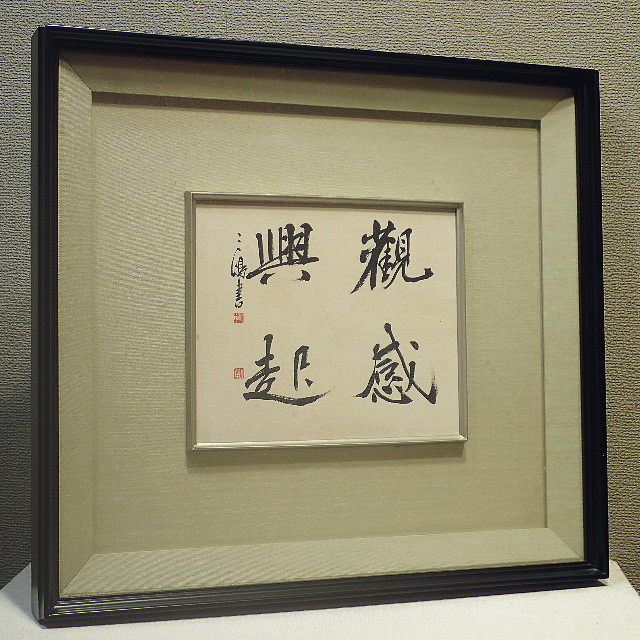 觀感
興起
三鴻書